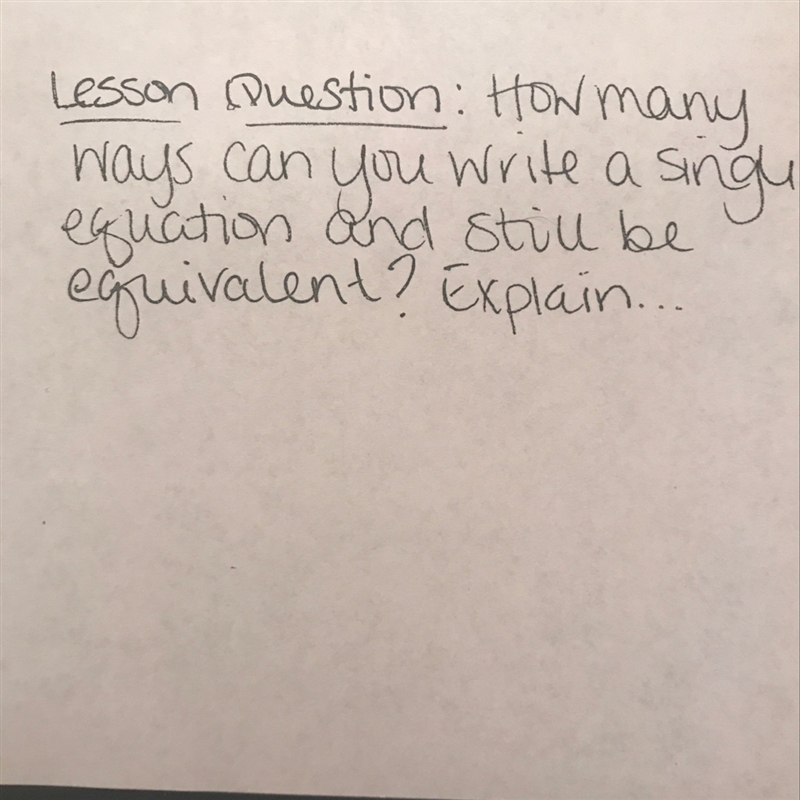 Lesson Question: How many
ways can you write a single
equation and still be
equivalent? Explain...